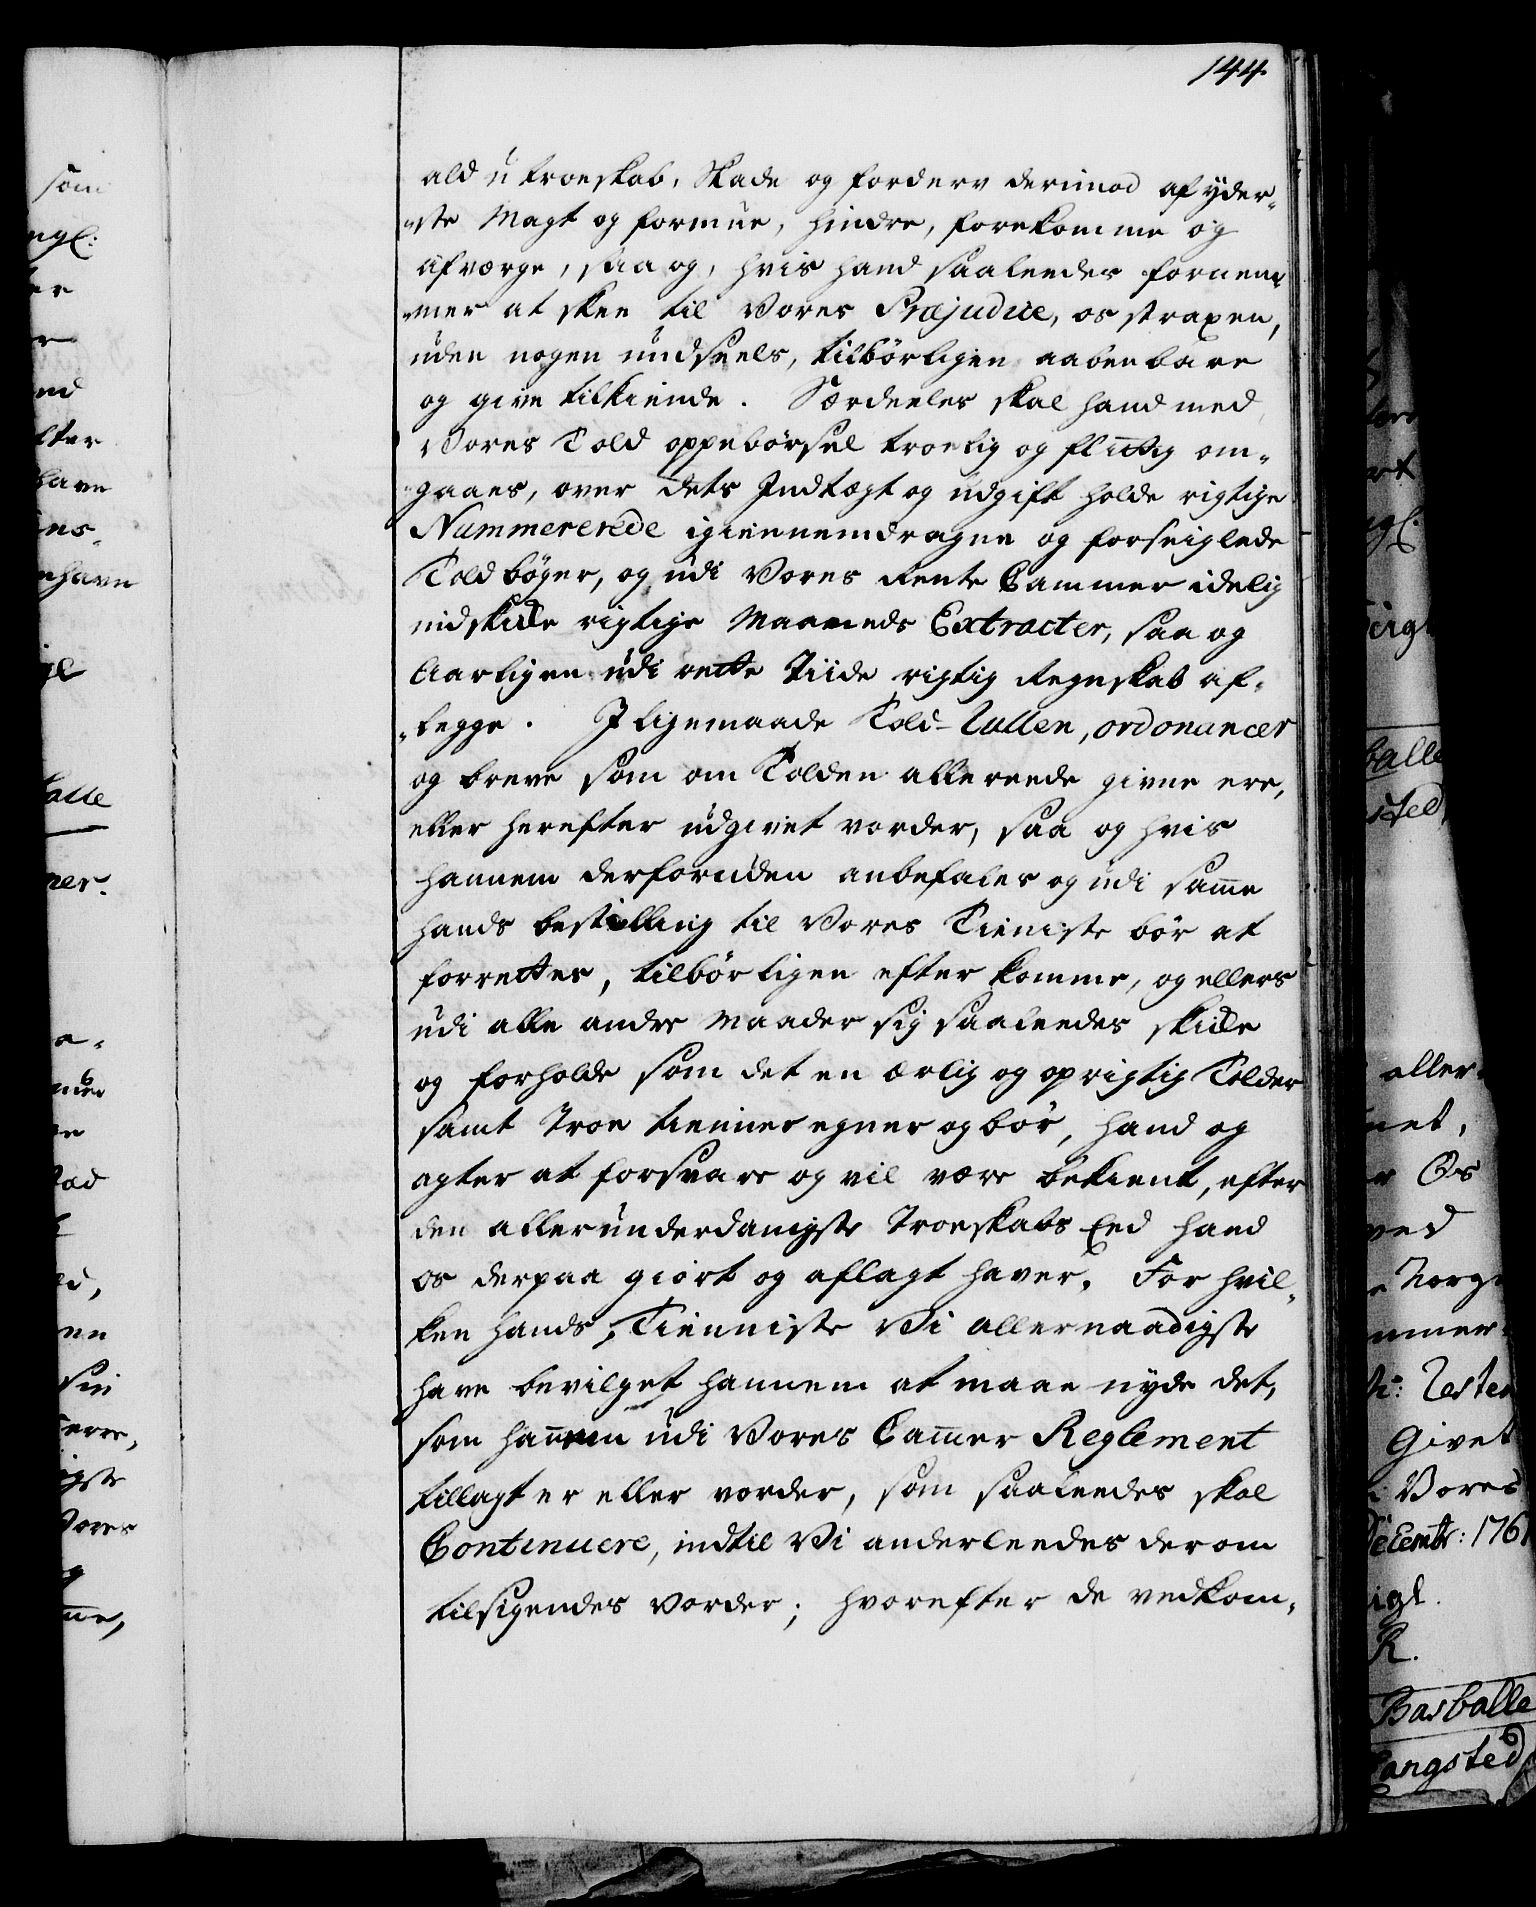 144.
ald utroeskab, Skade og forderv derimod af yder-
-ste Magt og formue, hindre, forekomme og
afværge, saa og, hvis hand saaleedes fornem-
-mer at skee til Vores Præjudice, os straxen,
uden nogen undseels, tilbørligen aabenbare
og give tilkiende. Særdeeles skal hand med
Vores Told oppebørsel troelig og flittig om-
gaaes, over dets Indtægt og udgift holde rigtige
Nummererede igiennemdragne og forseiglede
Toldbøger, og udi Vores Rente Cammer idelig
indskikke rigtige Maaneds Extracter, saa og
Aarligen udi rette Tiide rigtig Regnskab af-
-legge. I ligemaade Told-Rullen, ordonancer
og breve som om Tolden allereede givne ere,
eller herefter udgivet vorder, saa og hvis
hannem derforuden anbefales og udi samme
hands bestilling til Vores Tieniste bør at
forrettes, tilbørligen efterkomme, og ellers
udi alle andre Maader sig saaleedes skikke
og forholde som det en ærlig og oprigtig Tolder
samt Troe tienner egner og bør, hand og
agter at forsvare og vil være bekient, efter
den allerunderdanigste Troeskabs Eed hand
os derpaa giort og aflagt haver. For hvil-
ken hands Tienniste Vi allernaadigste
have bevilget hannem at maae nyde det,
som hannem udi Vores Cammer Reglement
tillagt er eller vorder, som saaleedes skal
Continuere, indtil Vi anderleedes derom
tilsigendes vorder; hvorefter de vedkom-